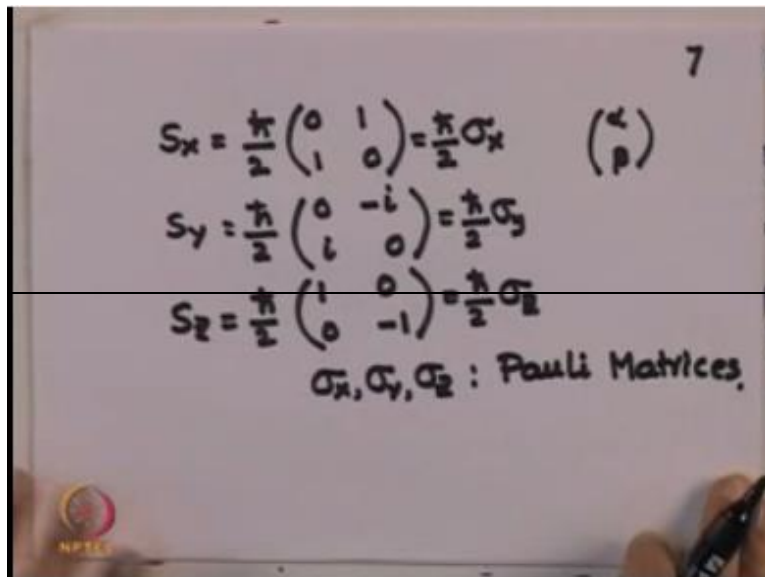 7
Sx = ħ/2 (0 1; 1 0) = ħ/2 σx (α; β)
Sy = ħ/2 (0 -i; i 0) = ħ/2 σy
Sz = ħ/2 (1 0; 0 -1) = ħ/2 σz
σx, σy, σz : Pauli Matrices.
NPTEL